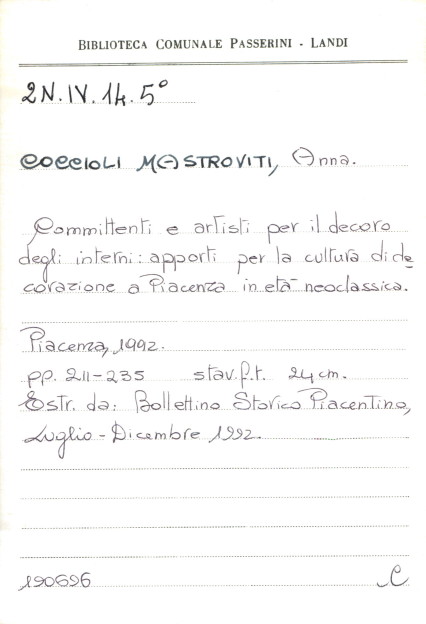 BIBLIOTECA COMUNALE PASSERINI - LANDI
2N.IV.14.5°
COCCIOLI MASTROVITI, Anna.
Committenti e artisti per il decoro
degli interni: apporti per la cultura di de
corazione a Piacenza in età neoclassica.
Piacenza, 1992.
pp. 211-235 stav.f.t. 24 cm.
Estr. da: Bollettino Storico Piacentino,
Luglio - Dicembre 1992.
190696 C